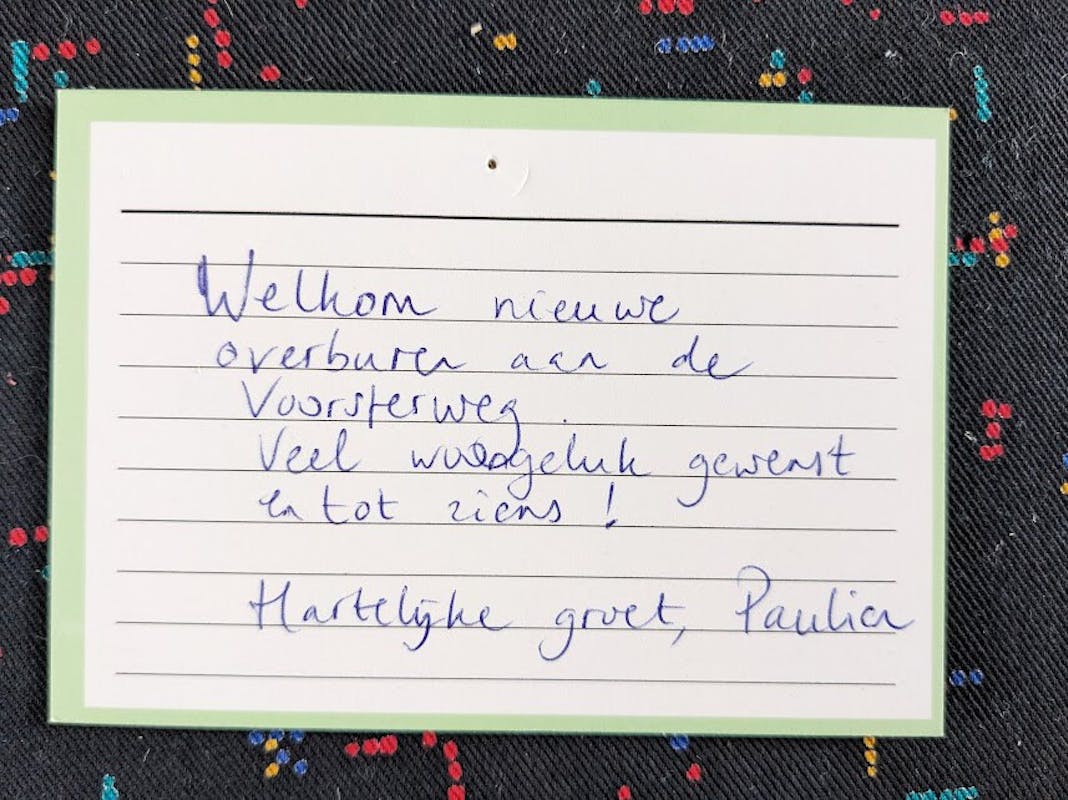 Welkom nieuwe
overburen aan de
Voorsterweg.
Veel woongeluk gewenst
en tot ziens!
Hartelijke groet, Paulien